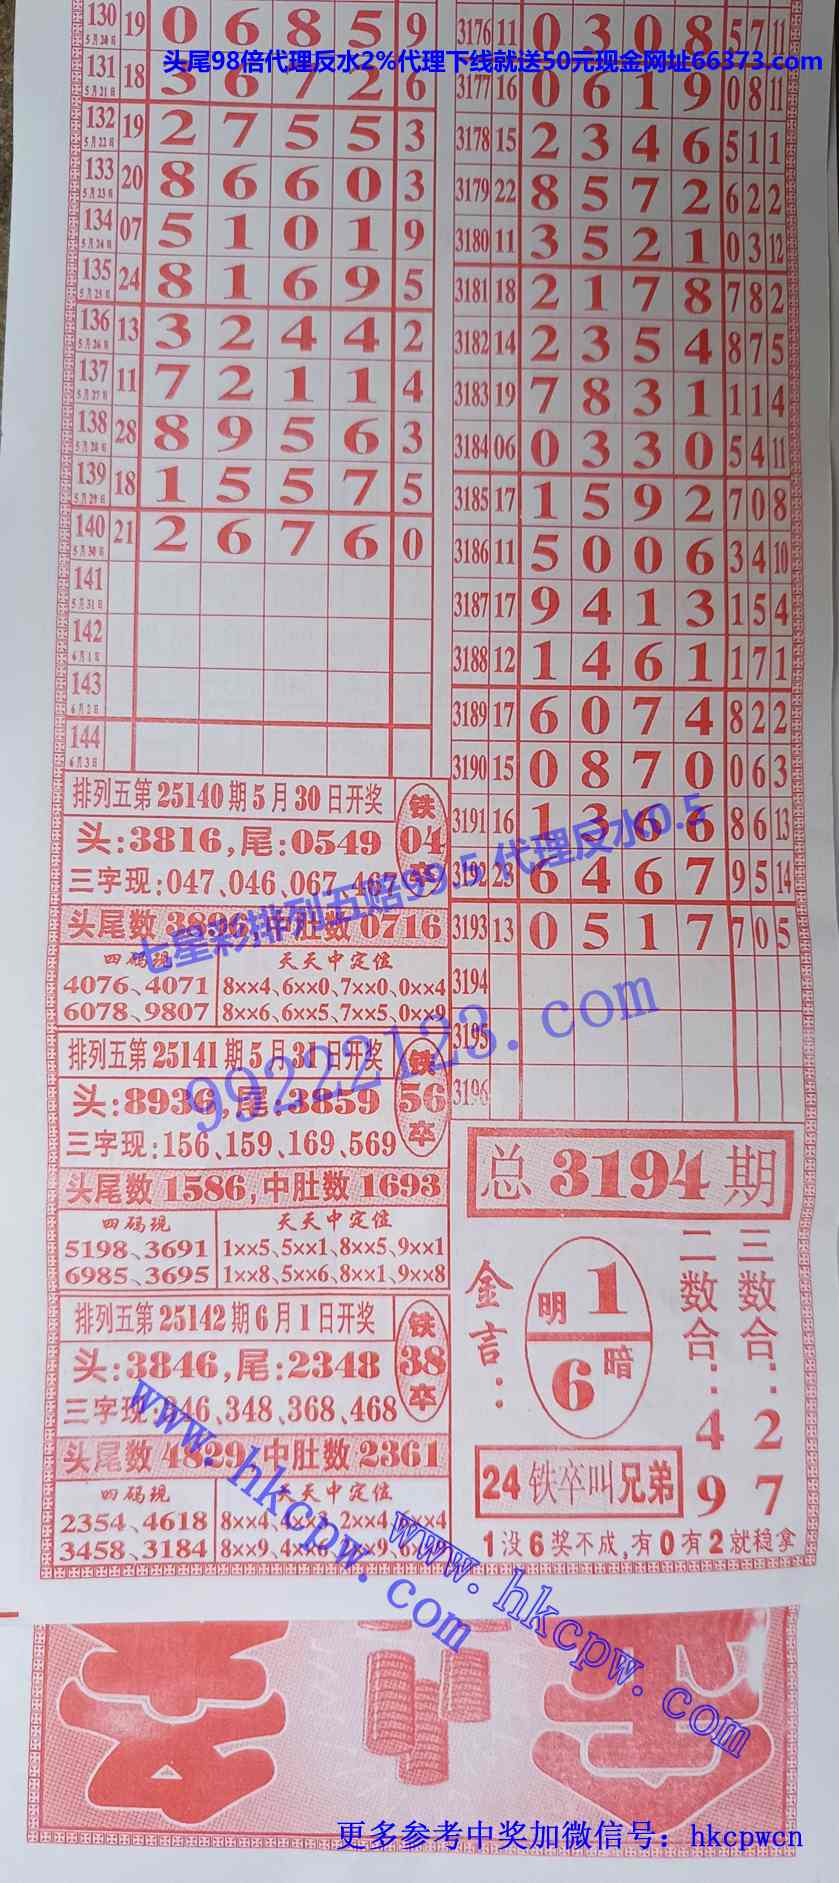 130 5月20日 19 0 6 8 5 9
头尾98倍代理反水2%代理下线就送50元现金网址66373.com
131 5月21日 18 3 6 7 2 6
132 5月22日 19 2 7 5 5 3
133 5月23日 20 8 6 6 0 3
134 5月24日 07 5 1 0 1 9
135 5月25日 24 8 1 6 9 5
136 5月26日 13 3 2 4 4 2
137 5月27日 11 7 2 1 1 4
138 5月28日 28 8 9 5 6 3
139 5月29日 18 1 5 5 7 5
140 5月30日 21 2 6 7 6 0
141 5月31日
142 6月1日
143 6月2日
144 6月3日
排列五第25140期5月30日开奖
头:3816,尾:0549
铁04卒
三字现:047、046、067、467
头尾数3896,中肚数0716
四码现
4076、4071
6078、9807
天天中定位
8××4、6××0、7××0、0××4
8××6、6××5、7××5、0××9
排列五第25141期5月31日开奖
头:8936,尾:3859
铁56卒
三字现:156、159、169、569
头尾数1586,中肚数1693
四码现
5198、3691
6985、3695
天天中定位
1××5、5××1、8××5、9××1
1××8、5××6、8××1、9××8
排列五第25142期6月1日开奖
头:3846,尾:2348
铁38卒
三字现:346、348、368、468
头尾数4829,中肚数2361
四码现
2354、4618
3458、3184
天天中定位
8××4、4××3、2××4、6××4
8××9、4××6、2××9、6××9
3176 11 0 3 0 8 5 7 11
3177 16 0 6 1 9 0 8 11
3178 15 2 3 4 6 5 1 1
3179 22 8 5 7 2 6 2 2
3180 11 3 5 2 1 0 3 12
3181 18 2 1 7 8 7 8 2
3182 14 2 3 5 4 8 7 5
3183 19 7 8 3 1 1 1 4
3184 06 0 3 3 0 5 4 11
3185 17 1 5 9 2 7 0 8
3186 11 5 0 0 6 3 4 10
3187 17 9 4 1 3 1 5 4
3188 12 1 4 6 1 1 7 1
3189 17 6 0 7 4 8 2 2
3190 15 0 8 7 0 0 6 3
3191 16 1 3 6 6 8 6 13
3192 23 6 4 6 7 9 5 14
3193 13 0 5 1 7 7 0 5
3194
3195
3196
七星彩排列五赔99.5代理反水0.5
99222123.com
总3194期
金言:
明1
6暗
二数合:49
三数合:27
24铁卒叫兄弟
1没6奖不成,有0有2就稳拿
www.hkcpw.com
www.hkcpw.com
更多参考中奖加微信号：hkcpwcn